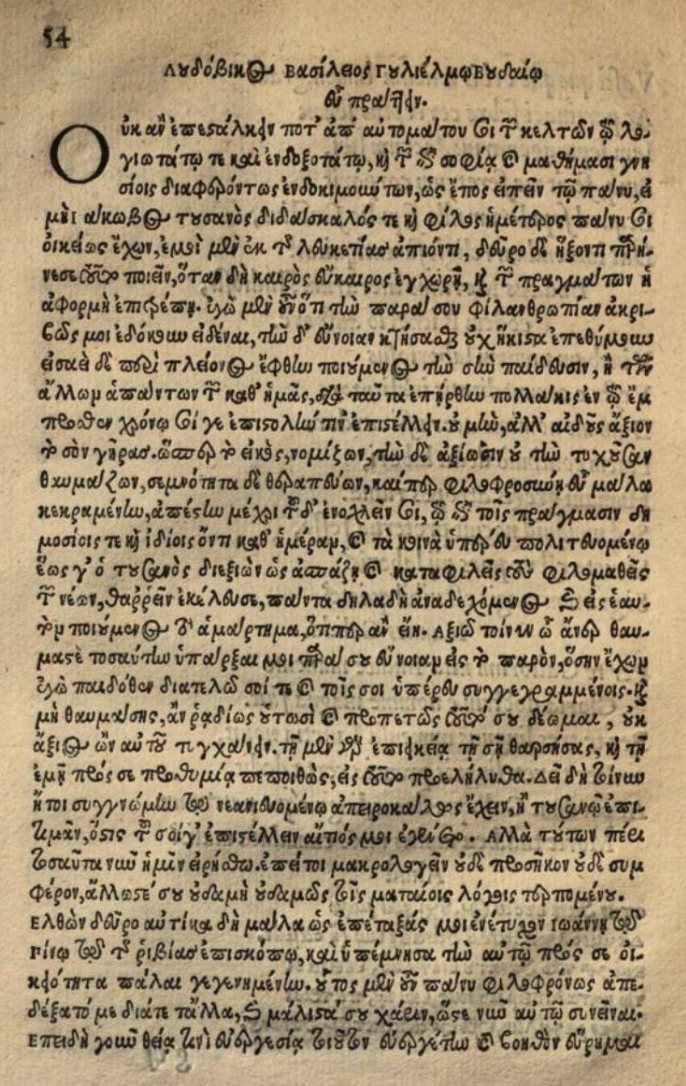 54
Λυδόβικος Βασίλειος Γυλιέλμῳ Βυδαίῳ
εὖ πράττειν.
Οὐκ ἂν ἐπεστάλκειν ποτ' ἀπ' αὐτομάτου σοι τῶν κελτῶν τῷ λο-
γιωτάτῳ τε καὶ ἐνδοξοτάτῳ, καὶ τῶν ἐν σοφίᾳ καὶ μαθήμασι γνη
σίοις διαφερόντως ἐνδοκιμούντων, ὡς ἔπος εἰπεῖν τῷ πάνυ, εἰ
μὴ Ιάκωβος τυσανὸς διδάσκαλός τε καὶ φίλος ἡμέτερος πάνυ σοι
οἰκείως ἔχων, ἐμοὶ μὲν ἐκ τῆς λευκετίας ἀπιόντι, δεῦρο δὲ ἥξοντι παρῄ-
νεσε τοῦτο ποιεῖν, ὅταν δὴ καιρὸς εὔκαιρος ἐγχωρῇ, καὶ τῶν πραγμάτων ἡ
ἀφορμὴ ἐπιτρέπῃ. ἐγὼ μὲν οὖν ὅτι τὴν παρά σου φιλανθρωπίαν ἀκρι-
βῶς μοι ἐδόκουν εἰδέναι, τὴν δ' εὔνοιαν κτήσασθαι οὐχ ἥκιστα ἐπεθύμουν
εἰσαεὶ δὲ περὶ πλείονος ἔφθην ποιούμενος τὴν σὴν παίδευσιν, ἢ τῶν
ἄλλων ἁπάντων τῶν καθ' ἡμᾶς, διὰ ταῦτα ἐπήρθην πολλάκις ἐν τῷ ἔμ
προσθεν χρόνῳ σοί γε ἐπιστολήν τιν' ἐπιστέλλειν. οὐ μὴν, ἀλλ' αἰδοῦς ἄξιον
τὸ σὸν γῆρας. ὥσπερ τὸ εἰκὸς, νομίζων, τὴν δὲ ἀξίωσιν οὐ τὴν τυχοῦσαν
θαυμάζων, σεμνότητα δὲ θεραπεύων, καίπερ φιλοφροσύνῃ εὖ μάλα
κεκραμένην, ἀπέστην μέχρι τοῦδ' ἐνοχλεῖν σοι, τῷ ἐν τοῖς πράγμασιν δη
μοσίοις τε καὶ ἰδίοις ὄντι καθ' ἡμέραν, καὶ τὰ κοινὰ ὑπέρευ πολιτευομένῳ
ἕως γ' ὁ τυσανὸς διεξιὼν ὡς ἀσπάζῃ καὶ καταφιλεῖς τοὺς φιλομαθεῖς
τῶν νέων, θαῤῥεῖν ἐκέλευσε, πάντα δηλαδὴ ἀναδεχόμενος καὶ εἰς ἑαυ-
τὸν ποιούμενος τὸ ἁμάρτημα, ὅπερ ἂν εἴη. Αξιῶ τοίνυν ὦ ἄνερ θαυ-
μαστὲ τοσαύτην ὑπάρξαι μοι παρά σου εὔνοιαν εἰς τὸ παρὸν, ὅσην ἔχων
ἐγὼ παιδόθεν διατελῶ σοί τε καὶ τοῖς σοι ὑπέρευ συγγεγραμμένοις. καὶ
μὴ θαυμάσῃς, ἂν ῥᾳδίως οὑτωσὶ καὶ προπετῶς τοῦτό σου δέωμαι, οὐκ
ἄξιος ὢν αὐτοῦ τυγχάνειν. τῇ μὲν γὰρ ἐπιεικείᾳ τῇ σῇ θαρσήσας, καὶ τῇ
ἐμῇ πρός σε προθυμίᾳ πεποιθὼς, εἰς τοῦτο προελήλυθα. Δεῖ δὴ τοίνυν
ἤτοι συγγνώμην τῷ νεανιευομένῳ ἀπειροκάλως ἔχειν, ἢ τυσανῷ ἐπι-
τιμᾶν, ὅστις τοῦ σοίγ' ἐπιστέλλειν αἴτιός μοι ἐγένετο. Αλλὰ τούτων πέρι
τοσαῦτα νῦν ἡμῖν εἰρήσθω. ἐπείτοι μακρολογεῖν οὐδὲ προσῆκον οὐδὲ συμ
φέρον, ἄλλωστέ σου οὐδαμῆ οὐδαμῶς τοῖς ματαίοις λόγοις τερπομένου.
Ελθὼν δεῦρο αὐτίκα δὴ μάλα ὡς ἐπέταξάς μοι ἐνέτυχον Ιωάννῃ τῷ
Πίνῳ τῷ τῆς ῥιβίας ἐπισκόπῳ, καὶ ὑπέμνησα τὴν αὐτῷ πρός σε οἰ-
κειότητα πάλαι γεγενημένην. οὗτος μὲν οὖν πάνυ φιλοφρόνως ἀπε-
δέξατό με διάτε τἄλλα, καὶ μάλιστά σου χάριν, ὥστε νῦν αὐτῷ συνεῖναι.
Επειδὴ γοῦν θείᾳ τινὶ εὐεργεσίᾳ τοιοῦτον εὐεργέτην καὶ βοηθὸν εὕρημαι